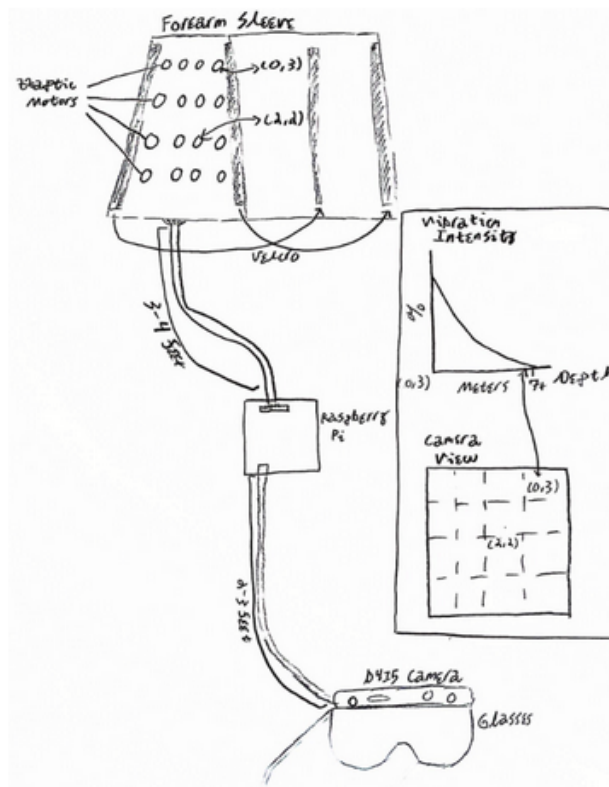 Forearm Sleeve
Haptic
Motors
(0,3)
(2,2)
Velcro
3-4 feet
Raspberry
Pi
2-3 feet
D415 Camera
Glasses
Vibration
Intensity
%
(0,3)
Meters
7+
Depth
Camera
View
(0,3)
(2,2)